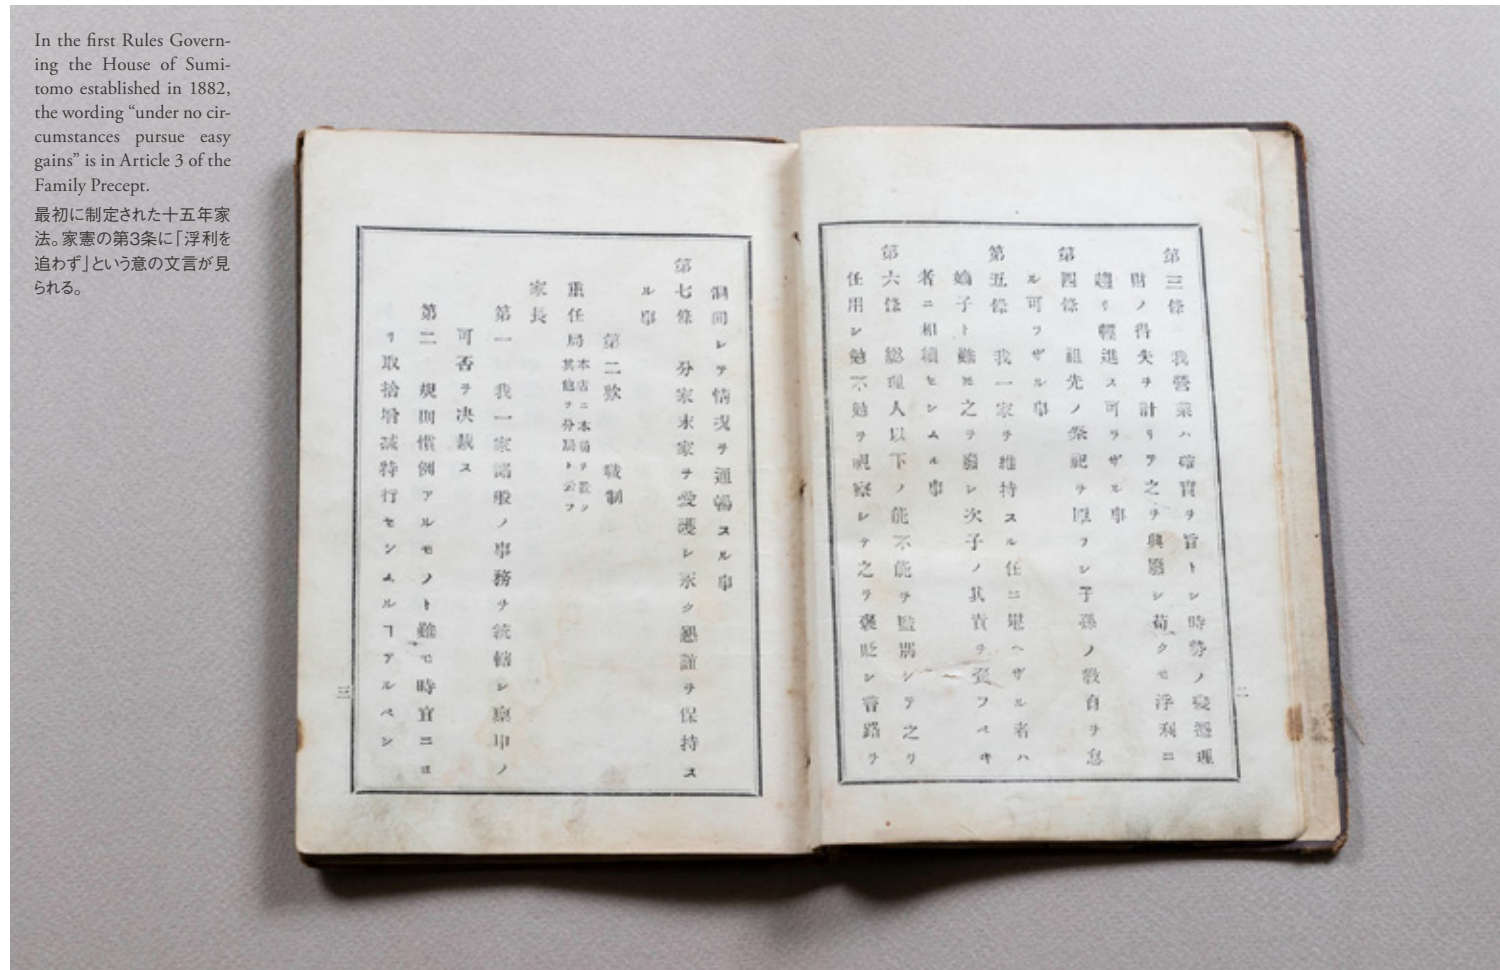 In the first Rules Govern-
ing the House of Sumi-
tomo established in 1882,
the wording “under no cir-
cumstances pursue easy
gains” is in Article 3 of the
Family Precept.
最初に制定された十五年家
法。家憲の第3条に「浮利を
追わず」という意の文言が見
られる。
第三條 我營業ハ確實ヲ旨トシ時勢ノ變遷理
財ノ得失ヲ計リテ之ヲ興廢シ苟クモ浮利ニ
趨リ輕進ス可ラザル事
第四條 祖先ノ祭祀ヲ厚フシ子孫ノ教育ヲ怠
ル可ラザル事
第五條 我一家ヲ維持スル任ニ堪ヘザル者ハ
嫡子ト雖𪜈之ヲ廢シ次子ノ其責ヲフベキ
者ニ相續セシムル事
第六條 總理人以下ノ能不能ヲ監別シテ之ヲ
任用シ勉不勉ヲ視察シテ之ヲ褒貶シ言路ヲ
二
洞開シテ情況ヲ通暢スル事
第七條 分家末家ヲ愛護シ永ク懇誼ヲ保持ス
ル事
第二欵 職制
重任局 本店ニ本局ヲ設ケ
其他ヲ分局ト云フ
家長
第一 我一家諸般ノ事務ヲ統轄シ稟申ノ
可否ヲ决裁ス
第二 規則慣例アルモノト雖𪜈時宜ニヨ
リ取捨増减特行セシムルヿアルベシ
三